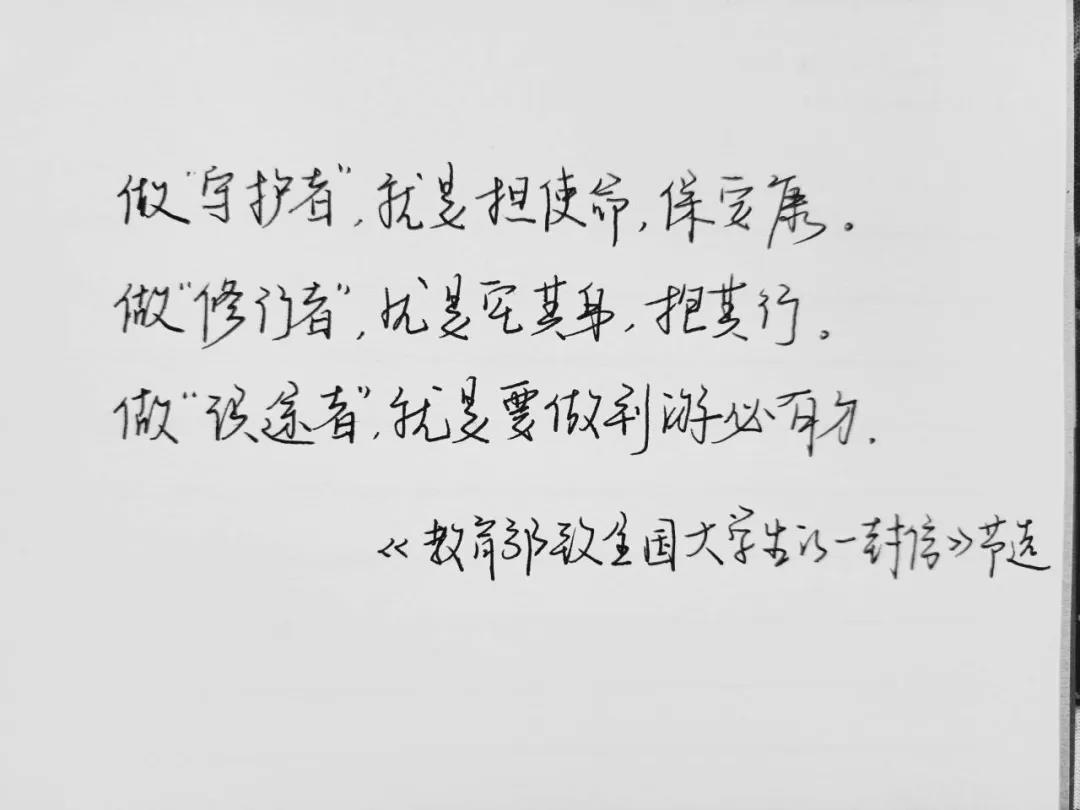 做“守护者”,就是担使命,保安康。
做“修行者”,就是宅其身,抱其行。
做“识途者”,就是要做到游必有方.
《教育部致全国大学生的一封信》节选